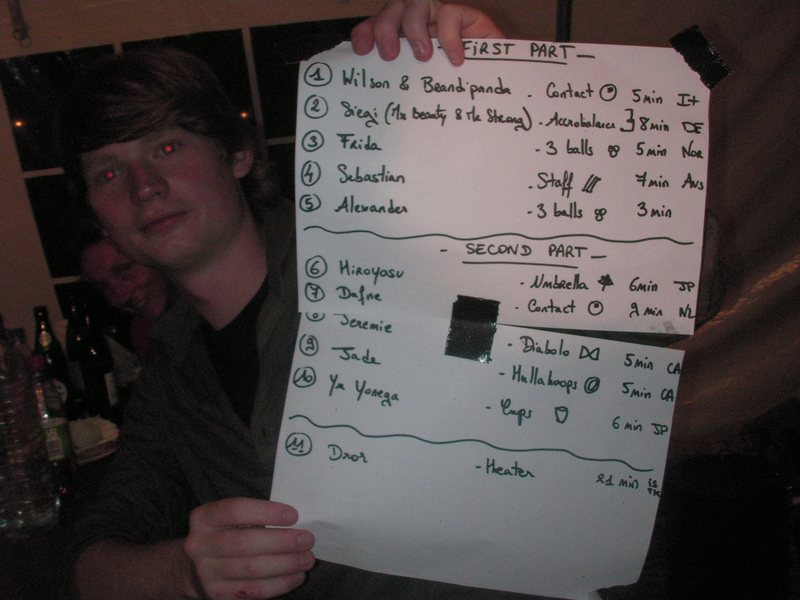 - FIRST PART -
1 Wilson & Beandipanda - Contact 5 min It
2 Siegi (Mr Beauty & Mr Strong) - Accrobalance 8 min DE
3 Frida - 3 balls 5 min Nor
4 Sebastian - Staff 7 min Aus
5 Alexander - 3 balls 3 min
- SECOND PART -
6 Hiroyasu - Umbrella 6 min JP
7 Dafne - Contact 9 min NL
8 Jeremie - Diabolo 5 min CA
9 Jade - Hullahoops 5 min CA
10 Yu Yonega - Cups 6 min JP
11 Dror - theater 21 min IS